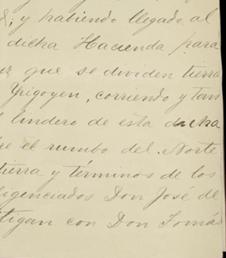 y habiendo llegado al
dicha Hacienda para
que se dividen tierra
Yrigoyen, corriendo y tan
lindero de esta dicha
el rumbo del Norte
tierra y términos de los
Don José de
con Don Tomás